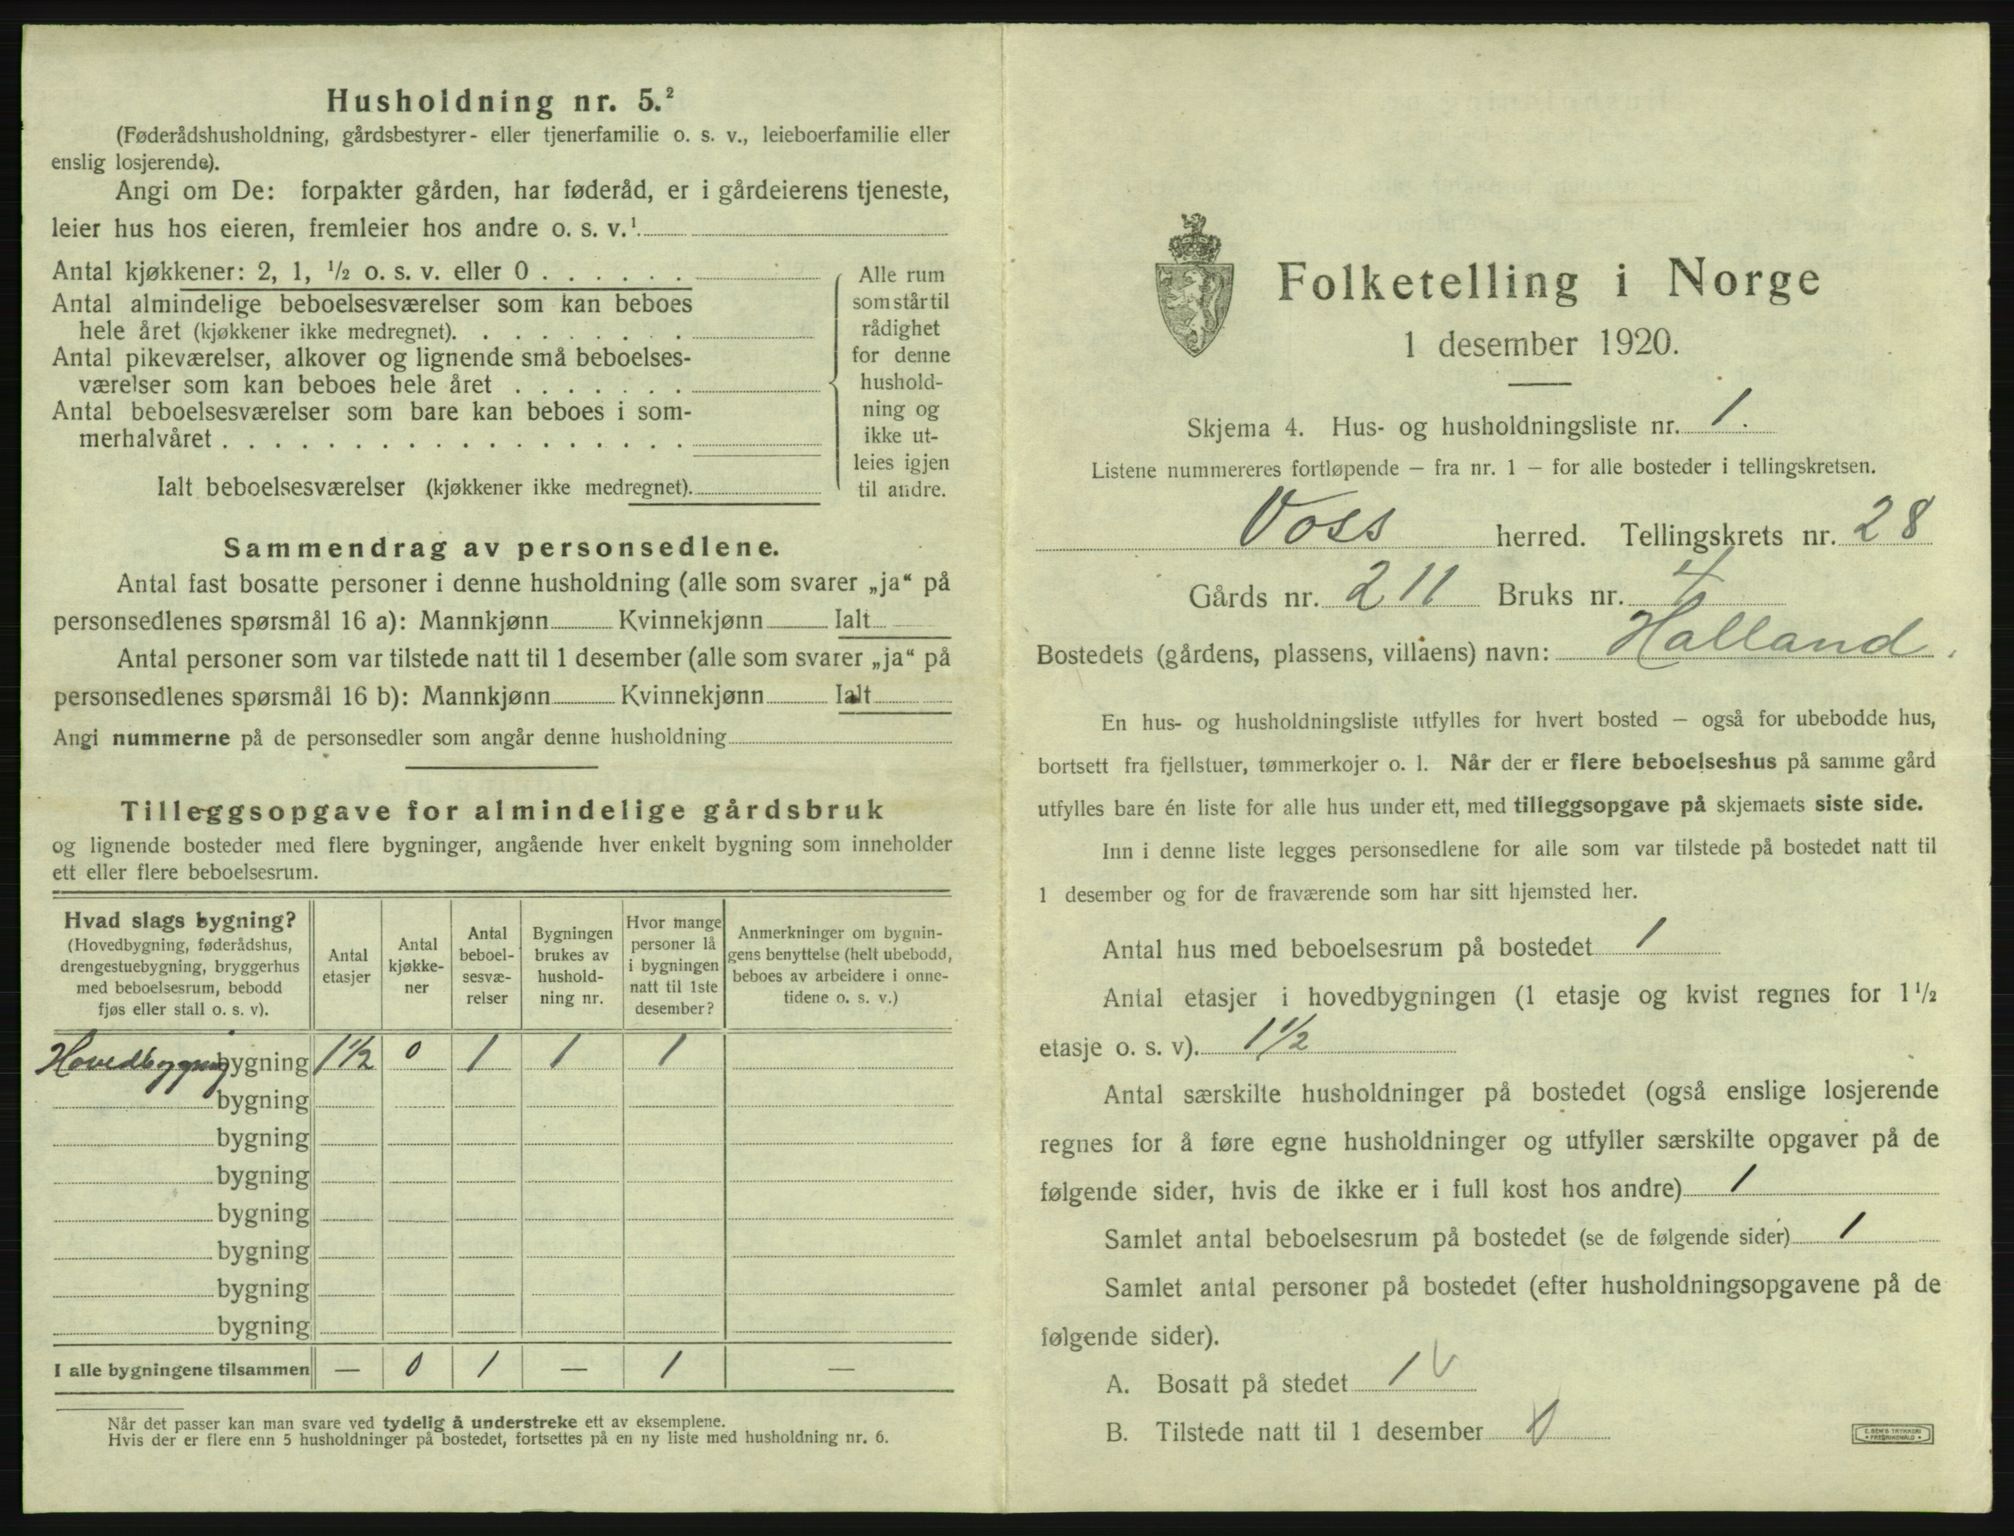 Husholdning nr. 5.²
(Føderådshusholdning, gårdsbestyrer- eller tjenerfamilie o. s. v., leieboerfamilie eller
enslig losjerende).
Angi om De: forpakter gården, har føderåd, er i gårdeierens tjeneste,
leier hus hos eieren, fremleier hos andre o. s. v.¹
Antal kjøkkener: 2, 1, ½ o. s. v. eller 0 . . . . . .
Antal almindelige beboelsesværelser som kan beboes
hele året (kjøkkener ikke medregnet). . . . . . . . .
Antal pikeværelser, alkover og lignende små beboelses-
værelser som kan beboes hele året . . . . . . .
Antal beboelsesværelser som bare kan beboes i som-
merhalvåret . . . . . . . . . . . . . . . . . .
Ialt beboelsesværelser (kjøkkener ikke medregnet).
Alle rum
som står til
rådighet
for denne
hushold-
ning og
ikke ut-
leies igjen
til andre.
Sammendrag av personsedlene.
Antal fast bosatte personer i denne husholdning (alle som svarer „ja“ på
personsedlenes spørsmål 16 a): Mannkjønn Kvinnekjønn Ialt
Antal personer som var tilstede natt til 1 desember (alle som svarer „ja“ på
personsedlenes spørsmål 16 b): Mannkjønn Kvinnekjønn Ialt
Angi nummerne på de personsedler som angår denne husholdning
Tilleggsopgave for almindelige gårdsbruk
og lignende bosteder med flere bygninger, angående hver enkelt bygning som inneholder
ett eller flere beboelsesrum.
Hvad slags bygning?
(Hovedbygning, føderådshus,
drengestuebygning, bryggerhus
med beboelsesrum, bebodd
fjøs eller stall o. s. v).
Antal
etasjer
Antal
kjøkke-
ner
Antal
beboel-
sesvæ-
relser
Bygningen
brukes av
hushold-
ning nr.
Hvor mange
personer lå
i bygningen
natt til 1ste
desember?
Anmerkninger om bygnin-
gens benyttelse (helt ubebodd,
beboes av arbeidere i onne-
tidene o. s. v.)
Hovedbygning bygning 1½ 0 1 1 1
bygning
bygning
bygning
bygning
bygning
bygning
bygning
I alle bygningene tilsammen — 0 1 — 1 —
Når det passer kan man svare ved tydelig å understreke ett av eksemplene.
Hvis der er flere enn 5 husholdninger på bostedet, fortsettes på en ny liste med husholdning nr. 6.
Folketelling i Norge
1 desember 1920.
Skjema 4. Hus- og husholdningsliste nr. 1.
Listene nummereres fortløpende – fra nr. 1 – for alle bosteder i tellingskretsen.
Voss herred. Tellingskrets nr. 28
Gårds nr. 211 Bruks nr. 4
Bostedets (gårdens, plassens, villaens) navn: Halland.
En hus- og husholdningsliste utfylles for hvert bosted – også for ubebodde hus,
bortsett fra fjellstuer, tømmerkojer o. l. Når der er flere beboelseshus på samme gård
utfylles bare én liste for alle hus under ett, med tilleggsopgave på skjemaets siste side.
Inn i denne liste legges personsedlene for alle som var tilstede på bostedet natt til
1 desember og for de fraværende som har sitt hjemsted her.
Antal hus med beboelsesrum på bostedet 1
Antal etasjer i hovedbygningen (1 etasje og kvist regnes for 1½
etasje o. s. v). 1½
Antal særskilte husholdninger på bostedet (også enslige losjerende
regnes for å føre egne husholdninger og utfyller særskilte opgaver på de
følgende sider, hvis de ikke er i full kost hos andre) 1
Samlet antal beboelsesrum på bostedet (se de følgende sider) 1
Samlet antal personer på bostedet (efter husholdningsopgavene på de
følgende sider).
A. Bosatt på stedet 1
B. Tilstede natt til 1 desember 0